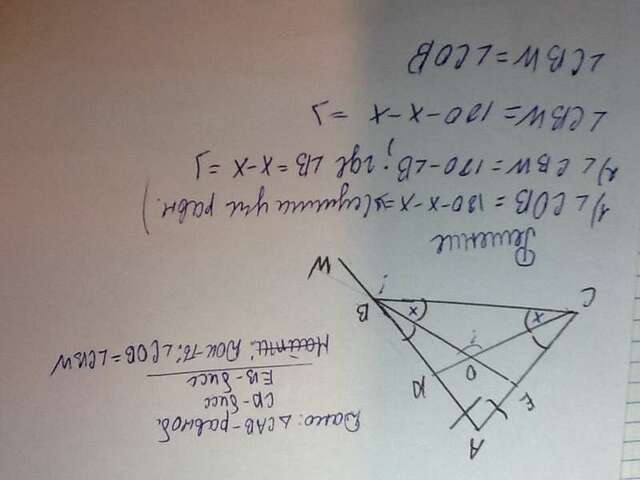 Дано: ∠CAB-равноб.
CD-бисс
EB-бисс
Найти: Док-ть: ∠COB = ∠CBW
A
E
D
O
?
x
x
B
?
W
C
Решение
1) ∠COB = 180-x-x=>(сумма угл равн.)
2) ∠CBW = 180-∠B; где ∠B = x-x =>
∠CBW = 180-x-x =>
∠CBW = ∠COB